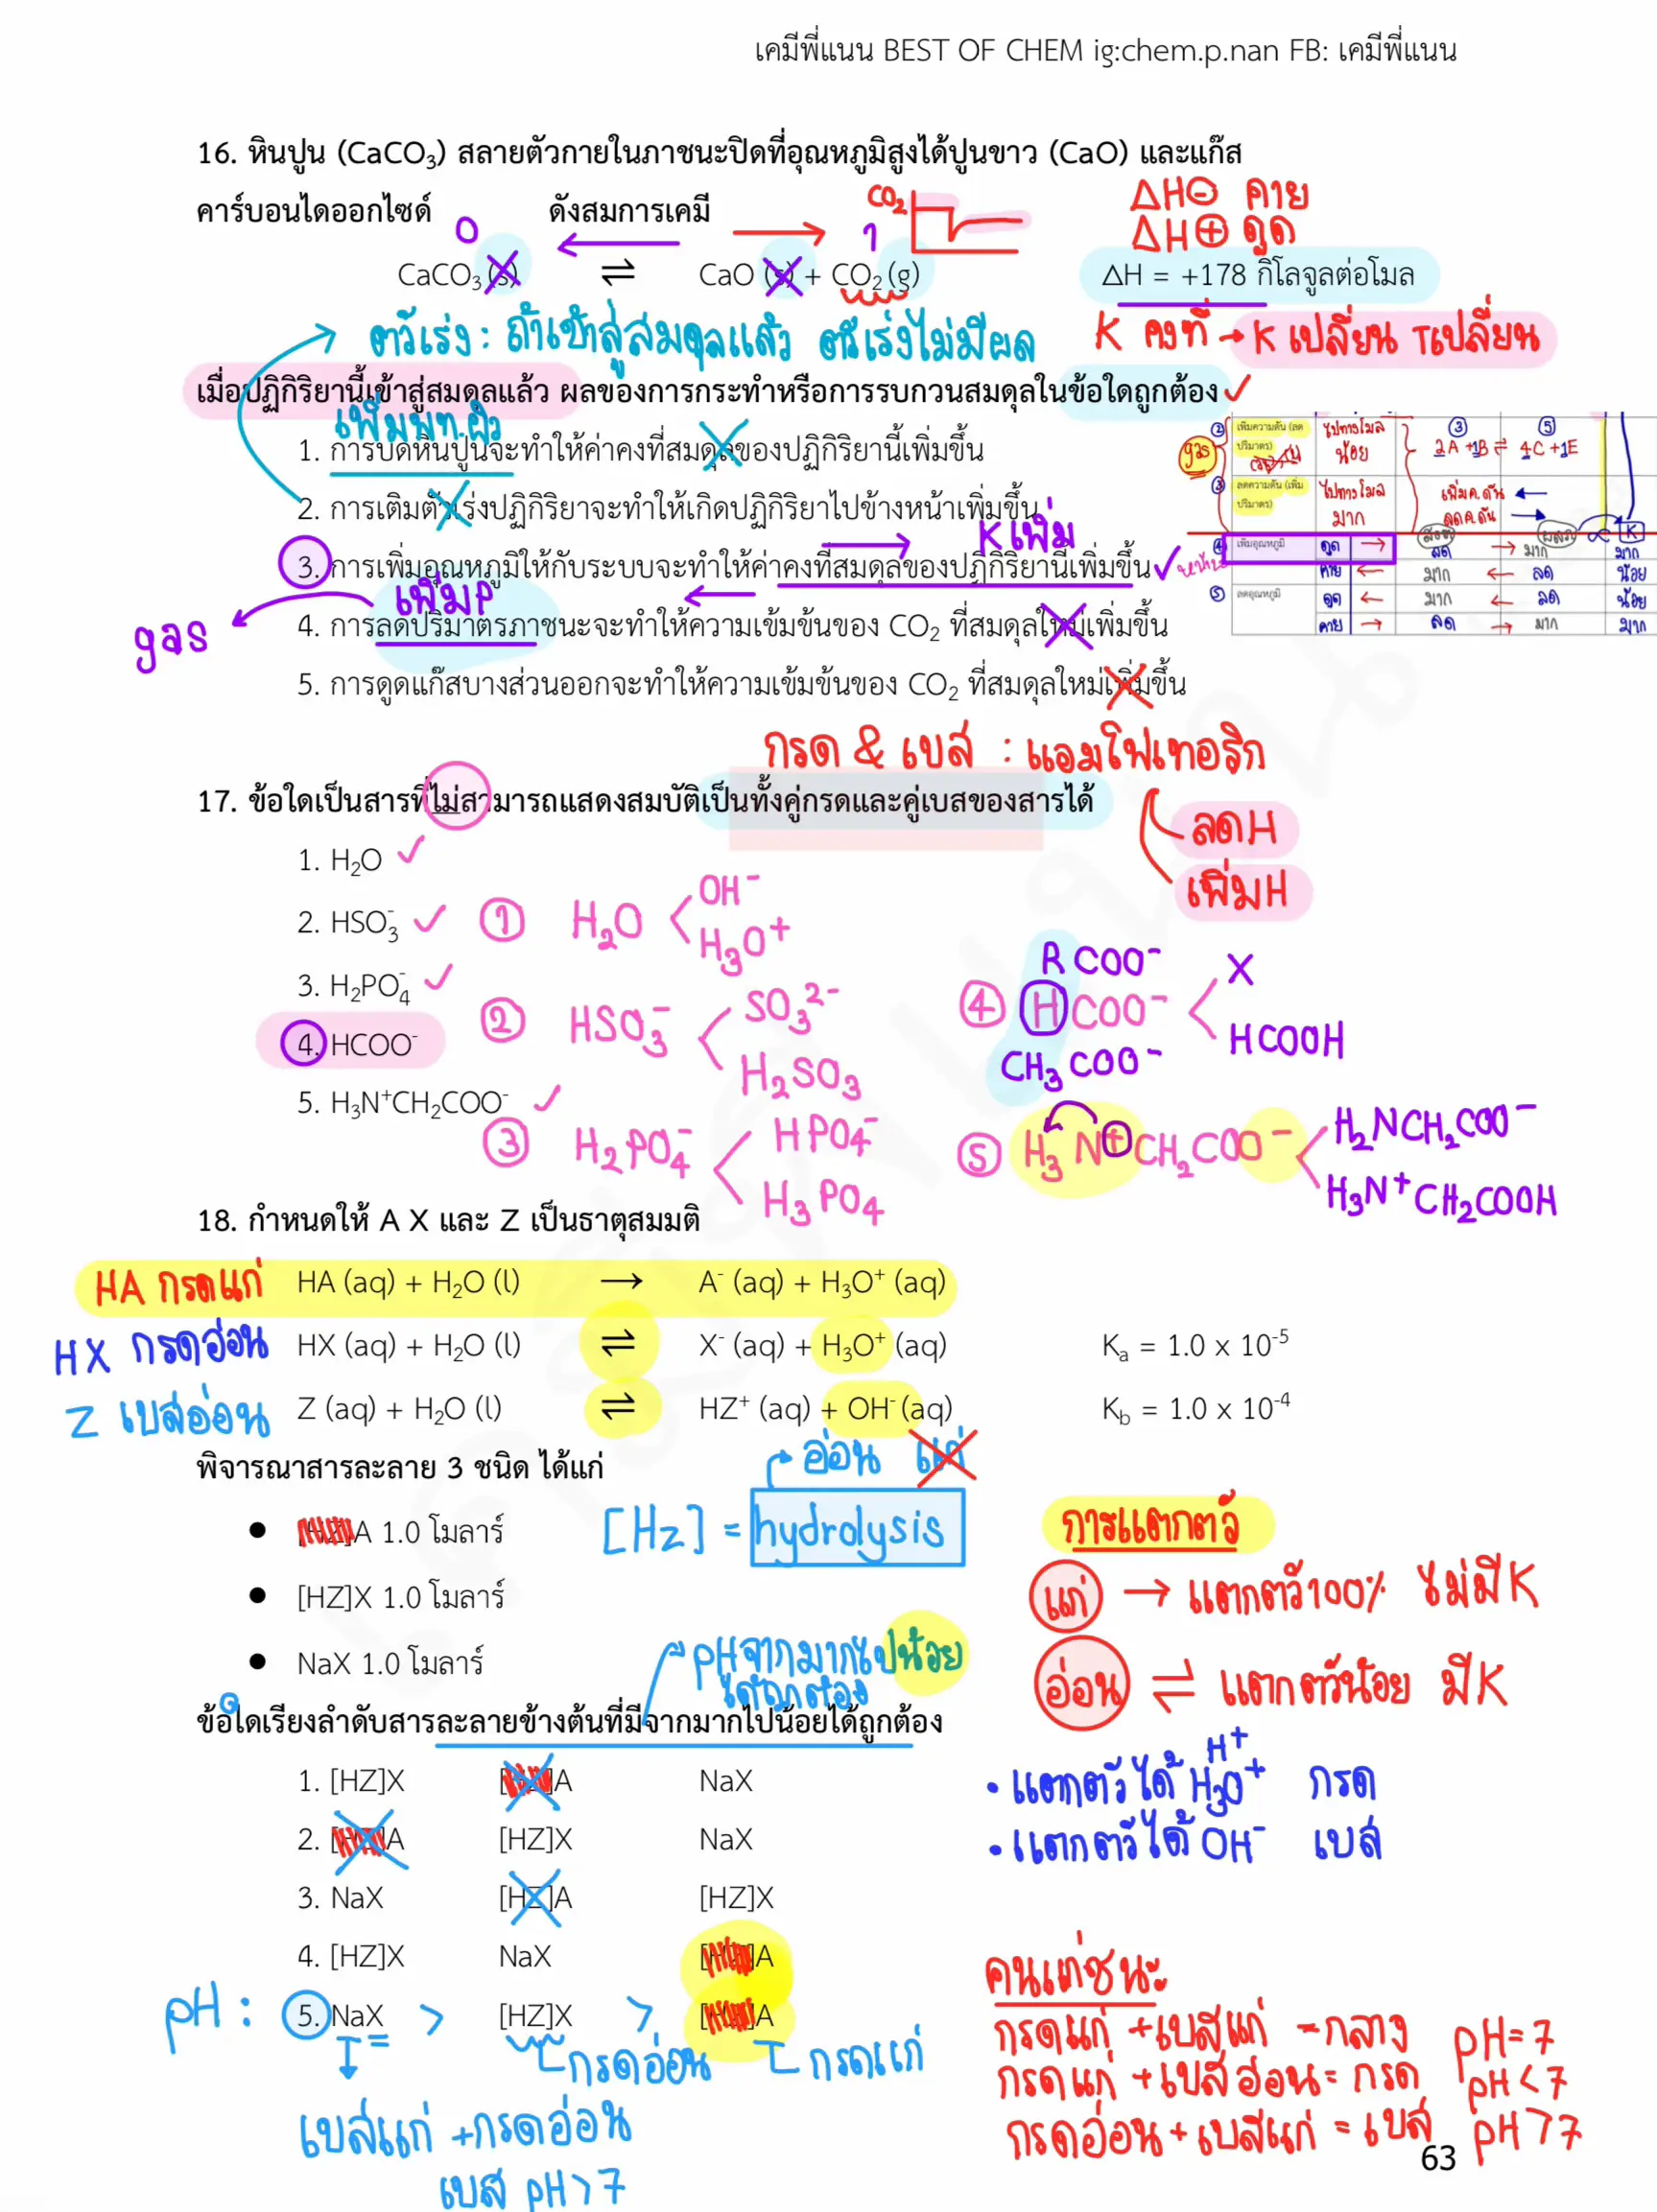 เคมีพี่แนน BEST OF CHEM ig:chem.p.nan FB: เคมีพี่แนน
16. หินปูน (CaCO₃) สลายตัวภายในภาชนะปิดที่อุณหภูมิสูงได้ปูนขาว (CaO) และแก๊ส
คาร์บอนไดออกไซด์ ดังสมการเคมี
CO₂
ΔH⊖ คาย
ΔH⊕ ดูด
0
1
CaCO₃ (s) ⇌ CaO (s) + CO₂ (g) ΔH = +178 กิโลจูลต่อโมล
ตัวเร่ง : ถ้าเข้าสู่สมดุลแล้ว ตัวเร่งไม่มีผล
K คงที่ → K เปลี่ยน Tเปลี่ยน
เมื่อปฏิกิริยานี้เข้าสู่สมดุลแล้ว ผลของการกระทำหรือการรบกวนสมดุลในข้อใดถูกต้อง
เพิ่มพท.ผิว
1. การบดหินปูนจะทำให้ค่าคงที่สมดุลของปฏิกิริยานี้เพิ่มขึ้น
2. การเติมตัวเร่งปฏิกิริยาจะทำให้เกิดปฏิกิริยาไปข้างหน้าเพิ่มขึ้น
K เพิ่ม
3. การเพิ่มอุณหภูมิให้กับระบบจะทำให้ค่าคงที่สมดุลของปฏิกิริยานี้เพิ่มขึ้น
เพิ่มP
gas
4. การลดปริมาตรภาชนะจะทำให้ความเข้มข้นของ CO₂ ที่สมดุลใหม่เพิ่มขึ้น
5. การดูดแก๊สบางส่วนออกจะทำให้ความเข้มข้นของ CO₂ ที่สมดุลใหม่เพิ่มขึ้น
gas
② เพิ่มความดัน (ลดปริมาตร) ไปทางโมลน้อย ③ ⑤
2A +1B ⇌ 4C +1E
③ ลดความดัน (เพิ่มปริมาตร) ไปทางโมลมาก เพิ่มค.ดัน ←
ลดค.ดัน →
K
④ เพิ่มอุณหภูมิ ดูด → ลด → มาก มาก
คาย ← มาก ← ลด น้อย
⑤ ลดอุณหภูมิ ดูด ← มาก ← ลด น้อย
คาย → ลด → มาก มาก
กรด & เบส : แอมโฟเทอริก
17. ข้อใดเป็นสารที่ไม่สามารถแสดงสมบัติเป็นทั้งคู่กรดและคู่เบสของสารได้
ลดH
เพิ่มH
1. H₂O
2. HSO₃⁻
3. H₂PO₄⁻
4. HCOO⁻
5. H₃N⁺CH₂COO⁻
① H₂O < OH⁻
H₃O⁺
② HSO₃⁻ < SO₃²⁻
H₂SO₃
③ H₂PO₄⁻ < HPO₄⁻
H₃PO₄
R COO⁻
④ HCOO⁻ < X
HCOOH
CH₃ COO⁻
⑤ H₃N⁺CH₂COO⁻ < H₂NCH₂COO⁻
H₃N⁺CH₂COOH
18. กำหนดให้ A X และ Z เป็นธาตุสมมติ
HA กรดแก่ HA (aq) + H₂O (l) → A⁻ (aq) + H₃O⁺ (aq)
HX กรดอ่อน HX (aq) + H₂O (l) ⇌ X⁻ (aq) + H₃O⁺ (aq) Kₐ = 1.0 x 10⁻⁵
Z เบสอ่อน Z (aq) + H₂O (l) ⇌ HZ⁺ (aq) + OH⁻ (aq) K_b = 1.0 x 10⁻⁴
พิจารณาสารละลาย 3 ชนิด ได้แก่
อ่อน แก่
[Hz] = hydrolysis
• [HZ]A 1.0 โมลาร์
• [HZ]X 1.0 โมลาร์
• NaX 1.0 โมลาร์
การแตกตัว
แก่ → แตกตัว100% ไม่มีK
อ่อน ⇌ แตกตัวน้อย มีK
pHจากมากไปน้อย
ได้ถูกต้อง
ข้อใดเรียงลำดับสารละลายข้างต้นที่มีจากมากไปน้อยได้ถูกต้อง
H⁺
• แตกตัวได้ H₃O⁺ กรด
• แตกตัวได้ OH⁻ เบส
1. [HZ]X [HZ]A NaX
2. [HZ]A [HZ]X NaX
3. NaX [HZ]A [HZ]X
4. [HZ]X NaX [HZ]A
pH : 5. NaX > [HZ]X > [HZ]A
กรดอ่อน กรดแก่
เบสแก่ +กรดอ่อน
เบส pH>7
คนแก่ชนะ
กรดแก่ +เบสแก่ =กลาง pH=7
กรดแก่ +เบสอ่อน= กรด pH<7
กรดอ่อน+เบสแก่ = เบส pH>7
63